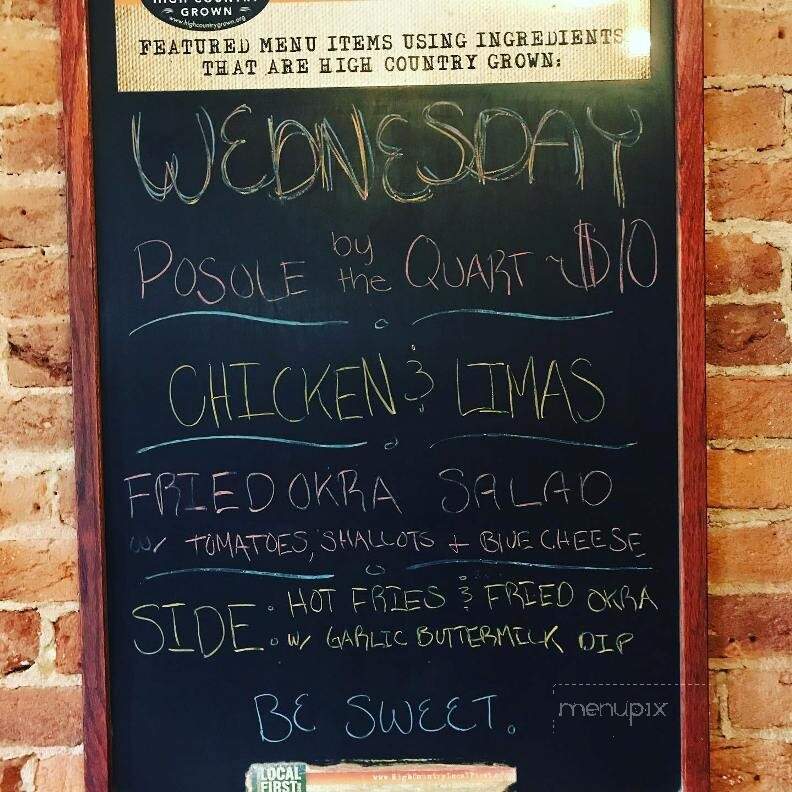 HIGH COUNTRY
GROWN
www.highcountrygrown.org
FEATURED MENU ITEMS USING INGREDIENTS
THAT ARE HIGH COUNTRY GROWN:
WEDNESDAY
POSOLE by the QUART ~$10
CHICKEN & LIMAS
FRIED OKRA SALAD
W/ TOMATOES, SHALLOTS + BLUE CHEESE
SIDE: HOT FRIES & FRIED OKRA
W/ GARLIC BUTTERMILK DIP
BE SWEET.
menupix
LOCAL
FIRST
www.HighCountryLocalFirst.com